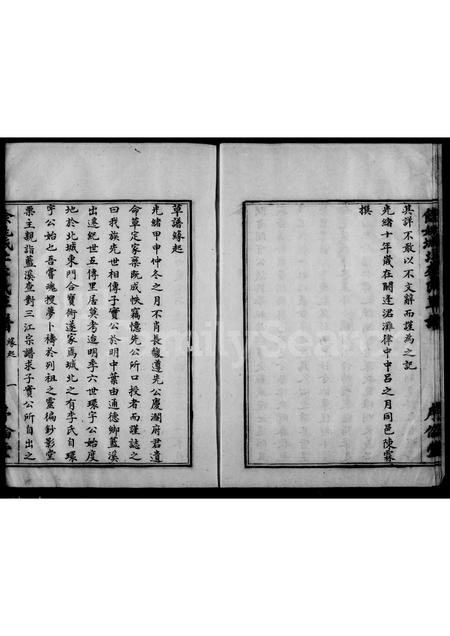 其詳不敢以不文辭而謹為之記
光緒十年歲在閼逢涒灘律中中呂之月同邑陳霖
撰
草譜緣起
光緒甲申仲冬之月不肖長馥遵先公慶瀾府君遺
命草定家乘既成帙竊憶先公所口授者而謹誌之
曰我族先世相傳子實公於明中葉由通德鄉藍溪
出遠紀世五傳里居莫考逮明季六世環宇公始度
地於北城東門合寶術遂家焉城北之有李氏自環
宇公始也吾嘗魂搜夢卜禱於列祖之靈徧鈔影堂
栗主親詣藍溪查對三江宗譜求子實公所自出之
緣起
一
FamilySearch